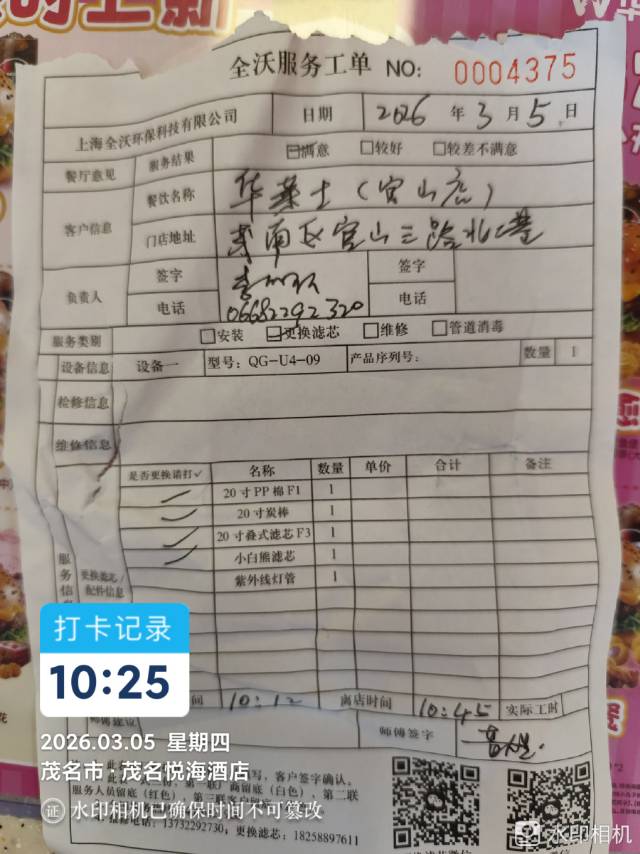 全沃服务工单 NO: 0004375
上海全沃环保科技有限公司 日期 2026 年 3 月 5 日
餐厅意见 服务结果 满意 较好 较差不满意
客户信息 餐饮名称 华莱士(官山店)
门店地址 官山三路北
负责人 签字 签字
电话 06682292320 电话
服务类别 安装 更换滤芯 维修 管道消毒
设备信息 设备一 型号: QG-U4-09 产品序列号: 数量 1
检修信息
维修信息
是否更换请打✓ 名称 数量 单价 合计 备注
20寸PP棉F1 1
20寸炭棒 1
20寸叠式滤芯F3 1
小白熊滤芯 1
紫外线灯管 1
服务信
更换滤芯/配件信息
打卡记录
10:25
间 10:12 离店时间 10:45 实际工时
师傅建议 师傅签字
2026.03.05 星期四
茂名市·茂名悦海酒店
写,客户签字确认。
服务人员留底(红色)、第一联)商留底(白色)、第二联
证 水印相机已确保时间不可篡改
维修电话: 13732292730, 更换滤芯: 18258897611
水印相机